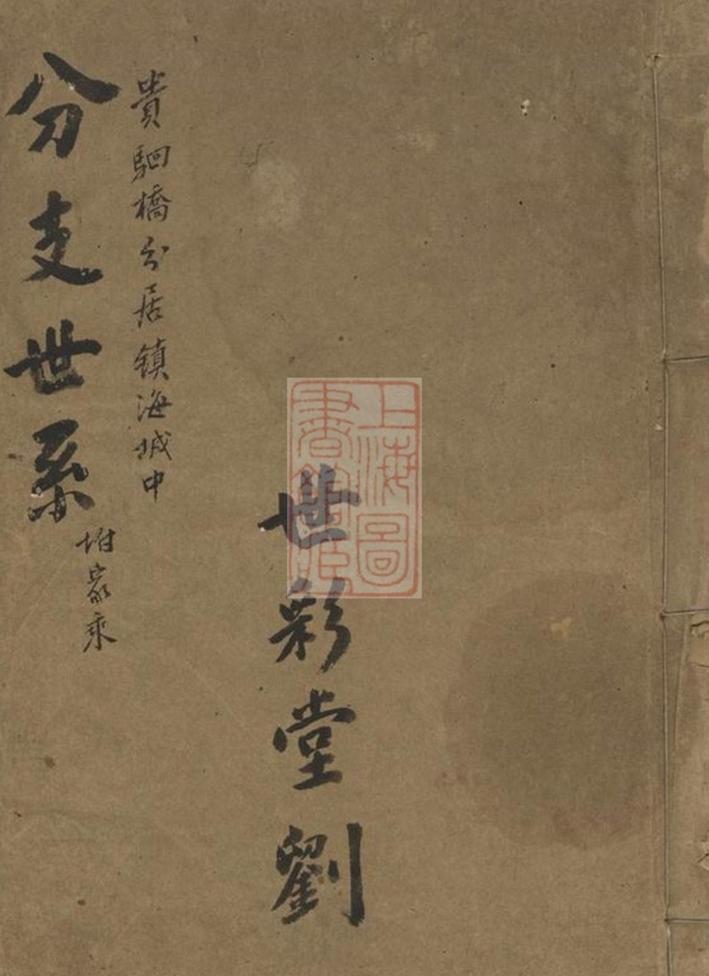 世彩堂劉
貴駟橋分居鎮海城中
分支世系
附家乘
上海圖
書館藏